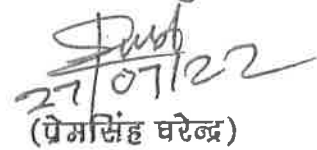 27/07/22
(प्रेमसिंह घरेन्द्र)